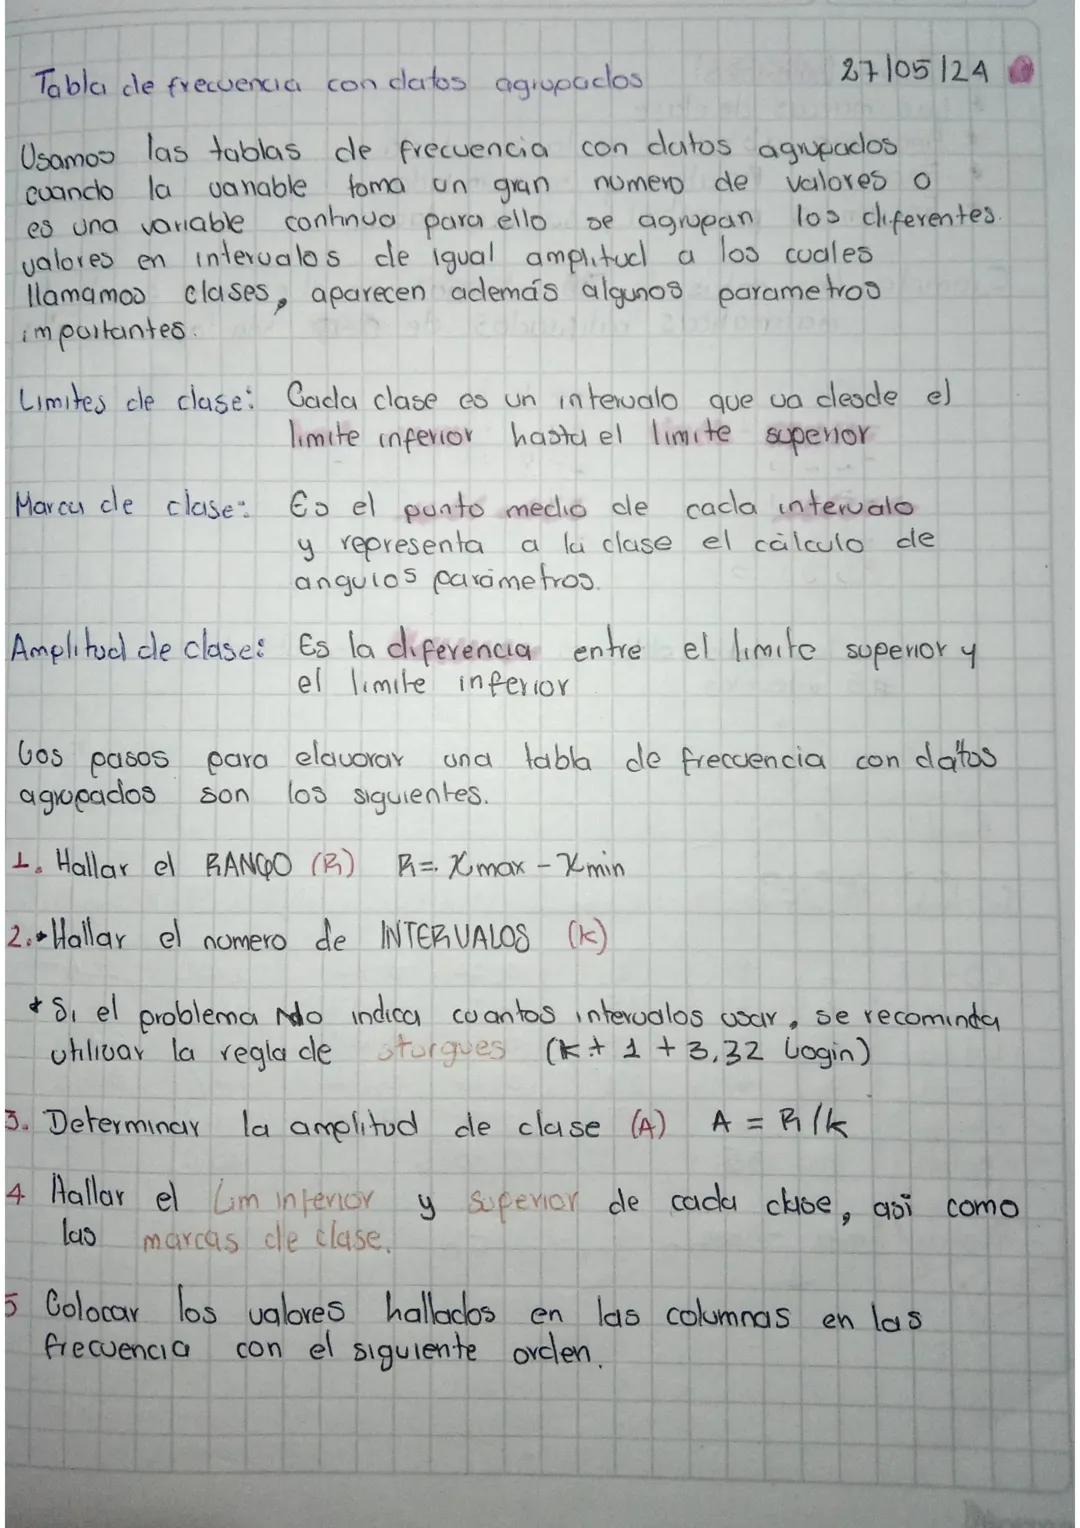 Tabla de frecuencia con datos agrupados 27/05/24
Usamos las tablas de frecuencia con datos agrupados
cuando la variable toma un gran numero de valores o
es una variable continua para ello se agrupan los diferentes.
valores en intervalos de igual amplitud a los cuales
llamamos clases, aparecen además algunos parametros
importantes.
Limites de clase: Cada clase es un intervalo que va desde el
limite inferior hasta el limite superior
Marca de clase: Es el punto medio de cada intervalo
y representa a la clase el cálculo de
angulos parámetros.
Amplitud de clase: Es la diferencia entre el limite superior y
el limite inferior
Los pasos para elavorar una tabla de frecuencia con datos
agrupados son los siguientes.
1. Hallar el RANGO (R) R= Xmax - Xmin
2. Hallar el numero de INTERVALOS (k)
* Si el problema No indica cuantos intervalos usar, se recominda
utilivar la regla de sturgues (k + 1 + 3,32 Login)
3. Determinar la amplitud de clase (A) A = R/k
4 Hallar el Lim inferior y superior de cada clase, asi como
las marcas de clase.
5 Colocar los valores hallados en las columnas en las
frecuencia con el siguiente orden.